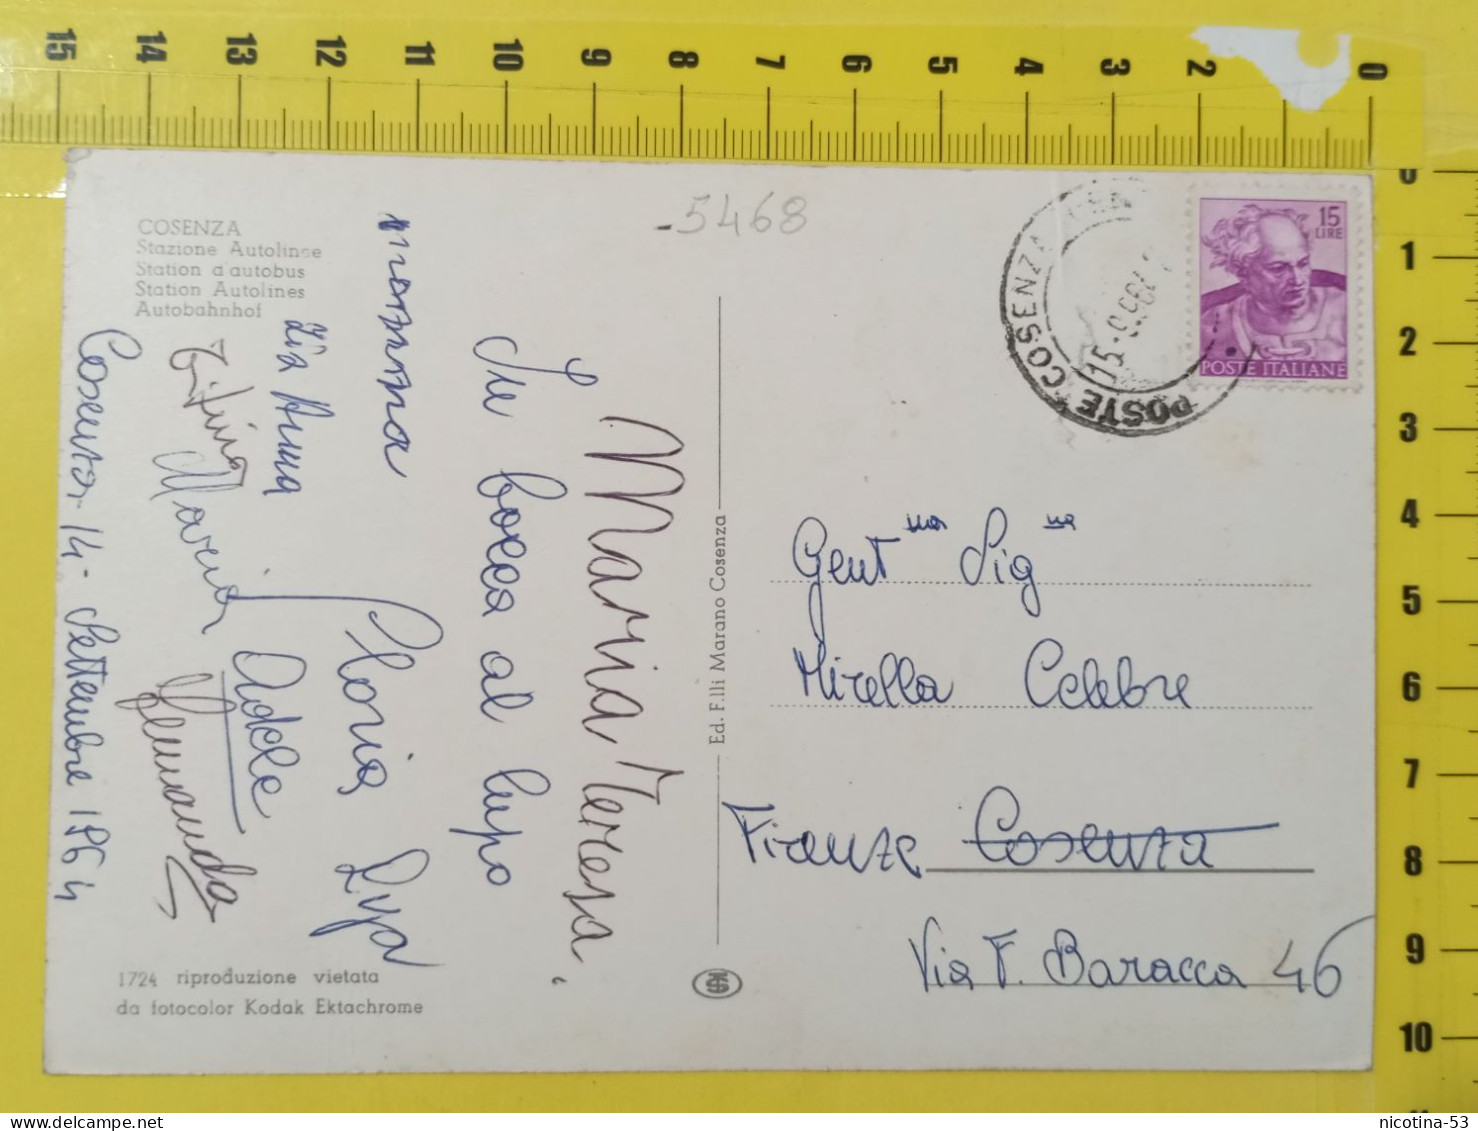 15 14 13 12 11 10 9 8 7 6 5 4 3 2 0
0
1
2
3
4
5
6
7
8
9
10
-5468
COSENZA
Stazione Autolinee
Station d'autobus
Station Autolines
Autobahnhof
15
LIRE
POSTE ITALIANE
POSTE COSENZA
Cosenza 14- Settembre 1964
Maria
Adele
zia Anna
mamma
In bocca al lupo
Maria Teresa,
Ed. F.lli Marano Cosenza
Gent ma Sig na
Mirella Celebre
Firenze Cosenza
Via F. Baracca 46
1724 riproduzione vietata
da fotocolor Kodak Ektachrome
nicotina-53